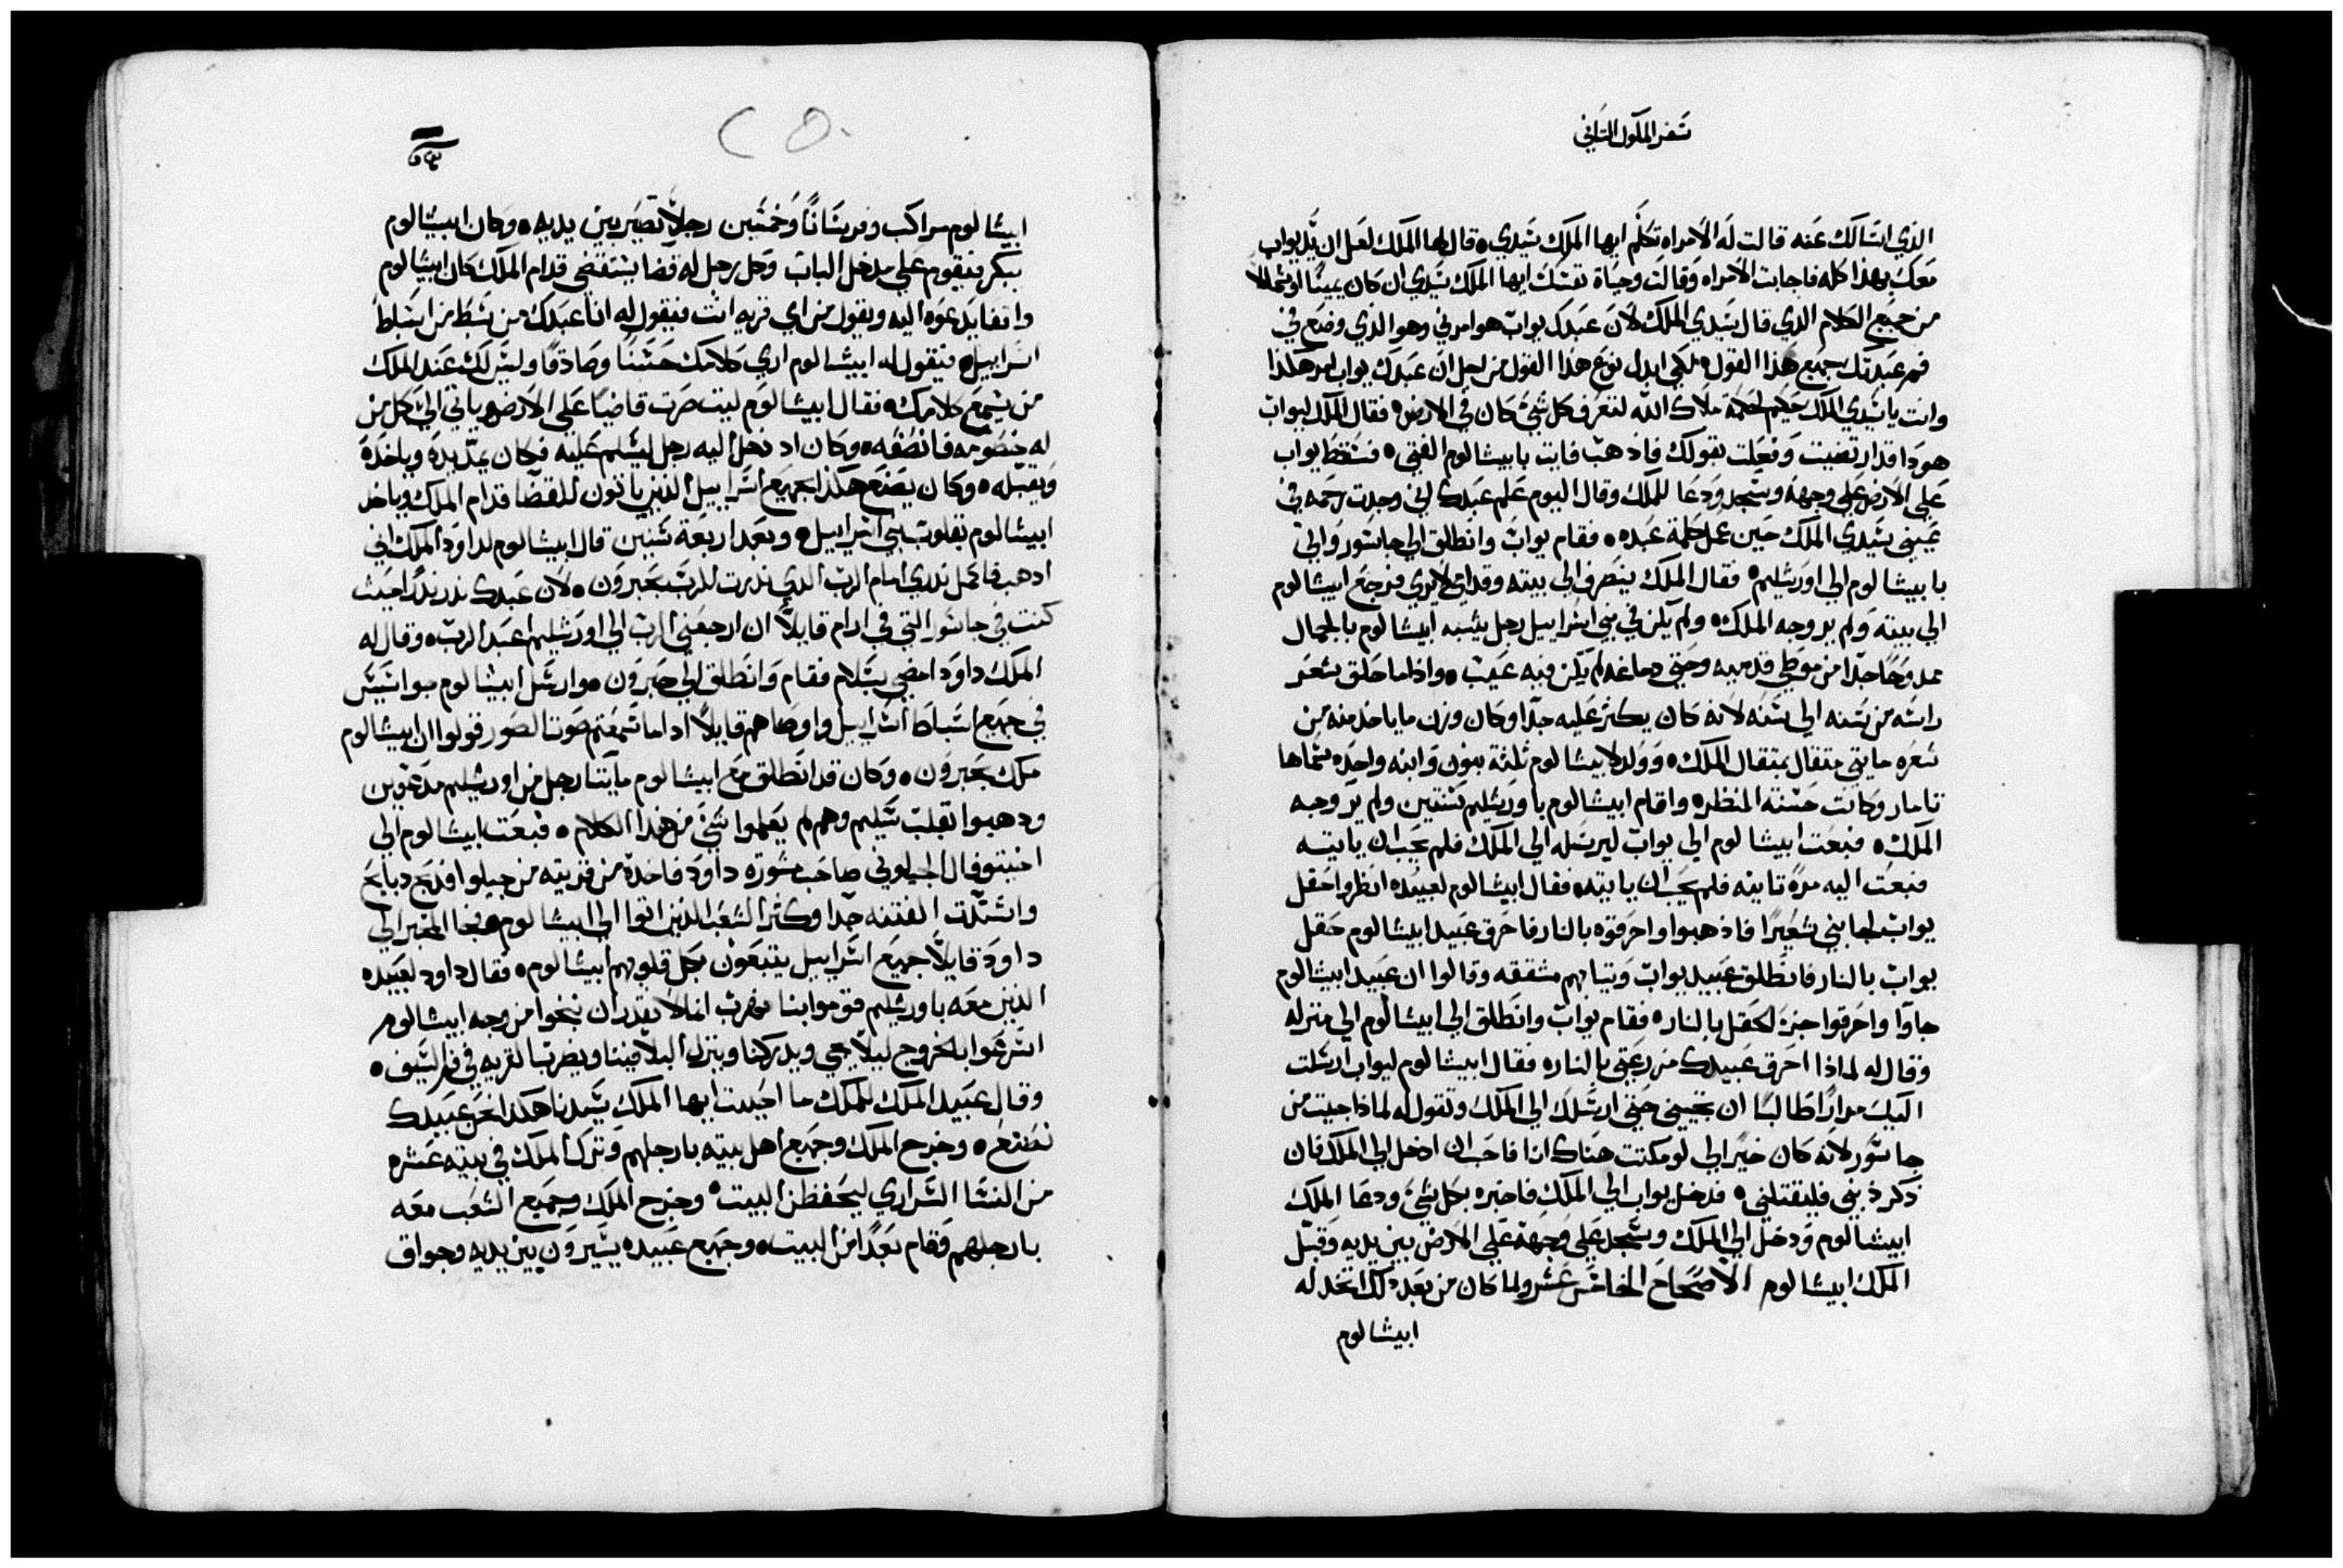 سفر الملوك الثاني
الذي اسالك عنه قالت له الامراه تكلم ايها الملك سيدي ٥ قال لها الملك لعل ان يد يواب
معك بهذا كله فاجابت الامراه وقالت وحياة نفسك ايها الملك سيدي ان كان يمينًا او شمالا
من جميع الكلام الذي قال سيدي الملك لان عبدك يواب هو امرني وهو الذي وضع في
فم عبدتك جميع هذا القول ٥ لكي ابدل نوع هذا القول من اجل ان عبدك يواب امر هكذا
وانت يا سيدي الملك حكيم كحكمة ملاك الله لتعرف كل شئ كان في الارض ٥ فقال الملك ليواب
هودا قدار تضيت وفعلت بقولك فاذهب فايت بابيشالوم الفتي ٥ فسقط يواب
علي الارض علي وجهه وسجد ودعا للملك وقال اليوم علم عبدك اني وجدت رحمه في
عيني سيدي الملك حين عمل كلمة عبده ٥ فقام يواب وانطلق الي جاشور واتي
بابيشالوم الي اورشليم ٥ فقال الملك ينصرف الي بيته وقدامي لا يري فرجع ابيشالوم
الي بيته ولم ير وجه الملك ٥ ولم يكن في بني اسراييل رجل يشبه ابيشالوم بالجمال
ممدوحًا جدًا من موطي قدميه وحتي دماغه لم يكن فيه عيب ٥ واذا ما حلق شعر
راسه من سنه الي سنه لانه كان يكثر عليه جدًا وكان وزن ما ياخد منه من
شعره مايتي متقال بمتقال الملك ٥ وولد لابيشالوم ثلثة بنون وابنه واحده سماها
تامار وكانت حسنة المنظر ٥ واقام ابيشالوم باورشليم سنتين ولم ير وجه
الملك ٥ فبعت ابيشالوم الي يواب ليرسله الي الملك فلم يحب ان ياتيه
فبعت اليه مرة تانيه فلم يحب ان ياتيه فقال ابيشالوم لعبيده انظروا حقل
يواب بجانبي شعيرًا فاذهبوا واحرقوه بالنار فاحرق عبيد ابيشالوم حقل
يواب بالنار فانطلق عبيد يواب وتيابهم مشققه وقالوا ان عبيد ابيشالوم
جاوا واحرقوا جزء الحقل بالنار ٥ فقام يواب وانطلق الي ابيشالوم الي منزله
وقال له لماذا احرق عبيدك مزرعتي بالنار ٥ فقال ابيشالوم ليواب ارسلت
اليك مرارًا طالبًا ان تجيني حتي ارسلك الي الملك وتقول له لماذا جيت من
جاشور لانه كان خيرًا لي لو مكتت هناك انا فاحب ان ادخل الي الملك فان
ذكر ذنبي فليقتلني ٥ فدخل يواب الي الملك فاخبره بكل شئ ودعا الملك
ابيشالوم ودخل الي الملك وسجد علي وجهه علي الارض بين يديه وقبل
الملك ابيشالوم الاصحاح الخامس عشر ولما كان من بعد ذلك اتخد له
ابيشالوم
ابيشالوم مراكب وفرسانًا وخمسين رجلًا تصير بين يديه ٥ وكان ابيشالوم
يبكر فيقوم علي مدخل الباب وكل رجل له قضا يستقضي قدام الملك كان ابيشالوم
واقفا يدعوه اليه ويقول من اي قريه انت فيقول له انا عبدك من سبط من اسباط
اسراييل ٥ فيقول له ابيشالوم اري كلامك حسنًا وصادقًا وليس لك عند الملك
من يسمع كلامك ٥ فقال ابيشالوم ليت صرت قاضيًا علي الارض وياتي الي كل من
له خصومه فانصفه ٥ وكان اد دخل اليه رجل ليسلم عليه فكان يمد يده وياخده
ويقبله ٥ وكان يصنع هكذا لجميع اسراييل الذين ياتون للقضا قدام الملك وياخد
ابيشالوم بقلوب بني اسراييل ٥ وبعد اربعة سنين قال ابيشالوم لداود الملك اني
ادهب فاكمل ندري امام الرب الدي ندرت للرب بحبرون ٥ لان عبدك ندر ندرًا حيث
كنت في جاشور التي في ادام قايلًا ان ارجعني الرب الي اورشليم اعبد الرب ٥ وقال له
الملك داود امضي بسلام فقام وانطلق الي حبرون ٥ وارسل ابيشالوم جواسيس
في جميع اسباط اسراييل واوصاهم قايلًا ادا ما سمعتم صوت الصور قولوا ان ابيشالوم
ملك بحبرون ٥ وكان قد انطلق مع ابيشالوم مايتا رجل من اورشليم مدعوين
ودهبوا بقلب سليم وهم لم يعلموا شئ من هذا الكلام ٥ فبعت ابيشالوم الي
اخيتوفال الجيلوني صاحب مشورة داود فاخده من قريته من جيلوا فدبح دبايح
واشتدت الفتنه جدًا وكثر الشعب الذين اتوا الي ابيشالوم فجا المخبر الي
داود قايلًا جميع اسراييل يتبعون بكل قلوبهم ابيشالوم ٥ فقال داود لعبيده
الذين معه باورشليم قوموا بنا نهرب اننا لا نقدر ان ننجوا من وجه ابيشالوم
اسرعوا بالخروج ليلا يجي ويدركنا وينزل البلا فينا ويضرب القريه في فم السيف ٥
وقال عبيد الملك للملك ما احببت ايها الملك سيدنا هكدا نحن عبيدك
نصنع ٥ وخرج الملك وجميع اهل بيته بارجلهم وترك الملك في بيته عشره
من النسا السراري ليحفظن البيت ٥ وخرج الملك وجميع الشعب معه
بارجلهم فقام بعدًا من البيت ٥ وجميع عبيده يسيرون بين يديه وجواق